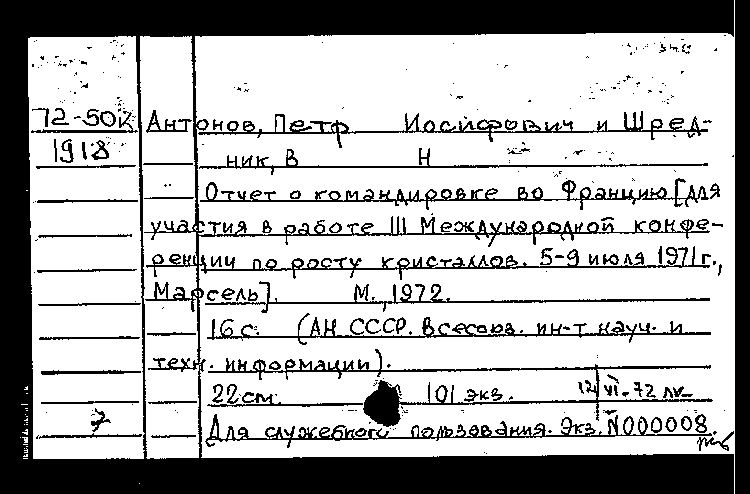 72-50к Антонов, Петр Иосифович и Шред-
1918 ник, В Н
Отчет о командировке во Францию [для
участия в работе III Международной конфе-
ренции по росту кристаллов. 5-9 июля 1971 г.,
Марсель]. М., 1972.
16 с. (АН СССР. Всесоюз. ин-т науч. и
техн. информации).
22 см. 101 экз. 12/VI-72
7 Для служебного пользования. Экз. N000008.